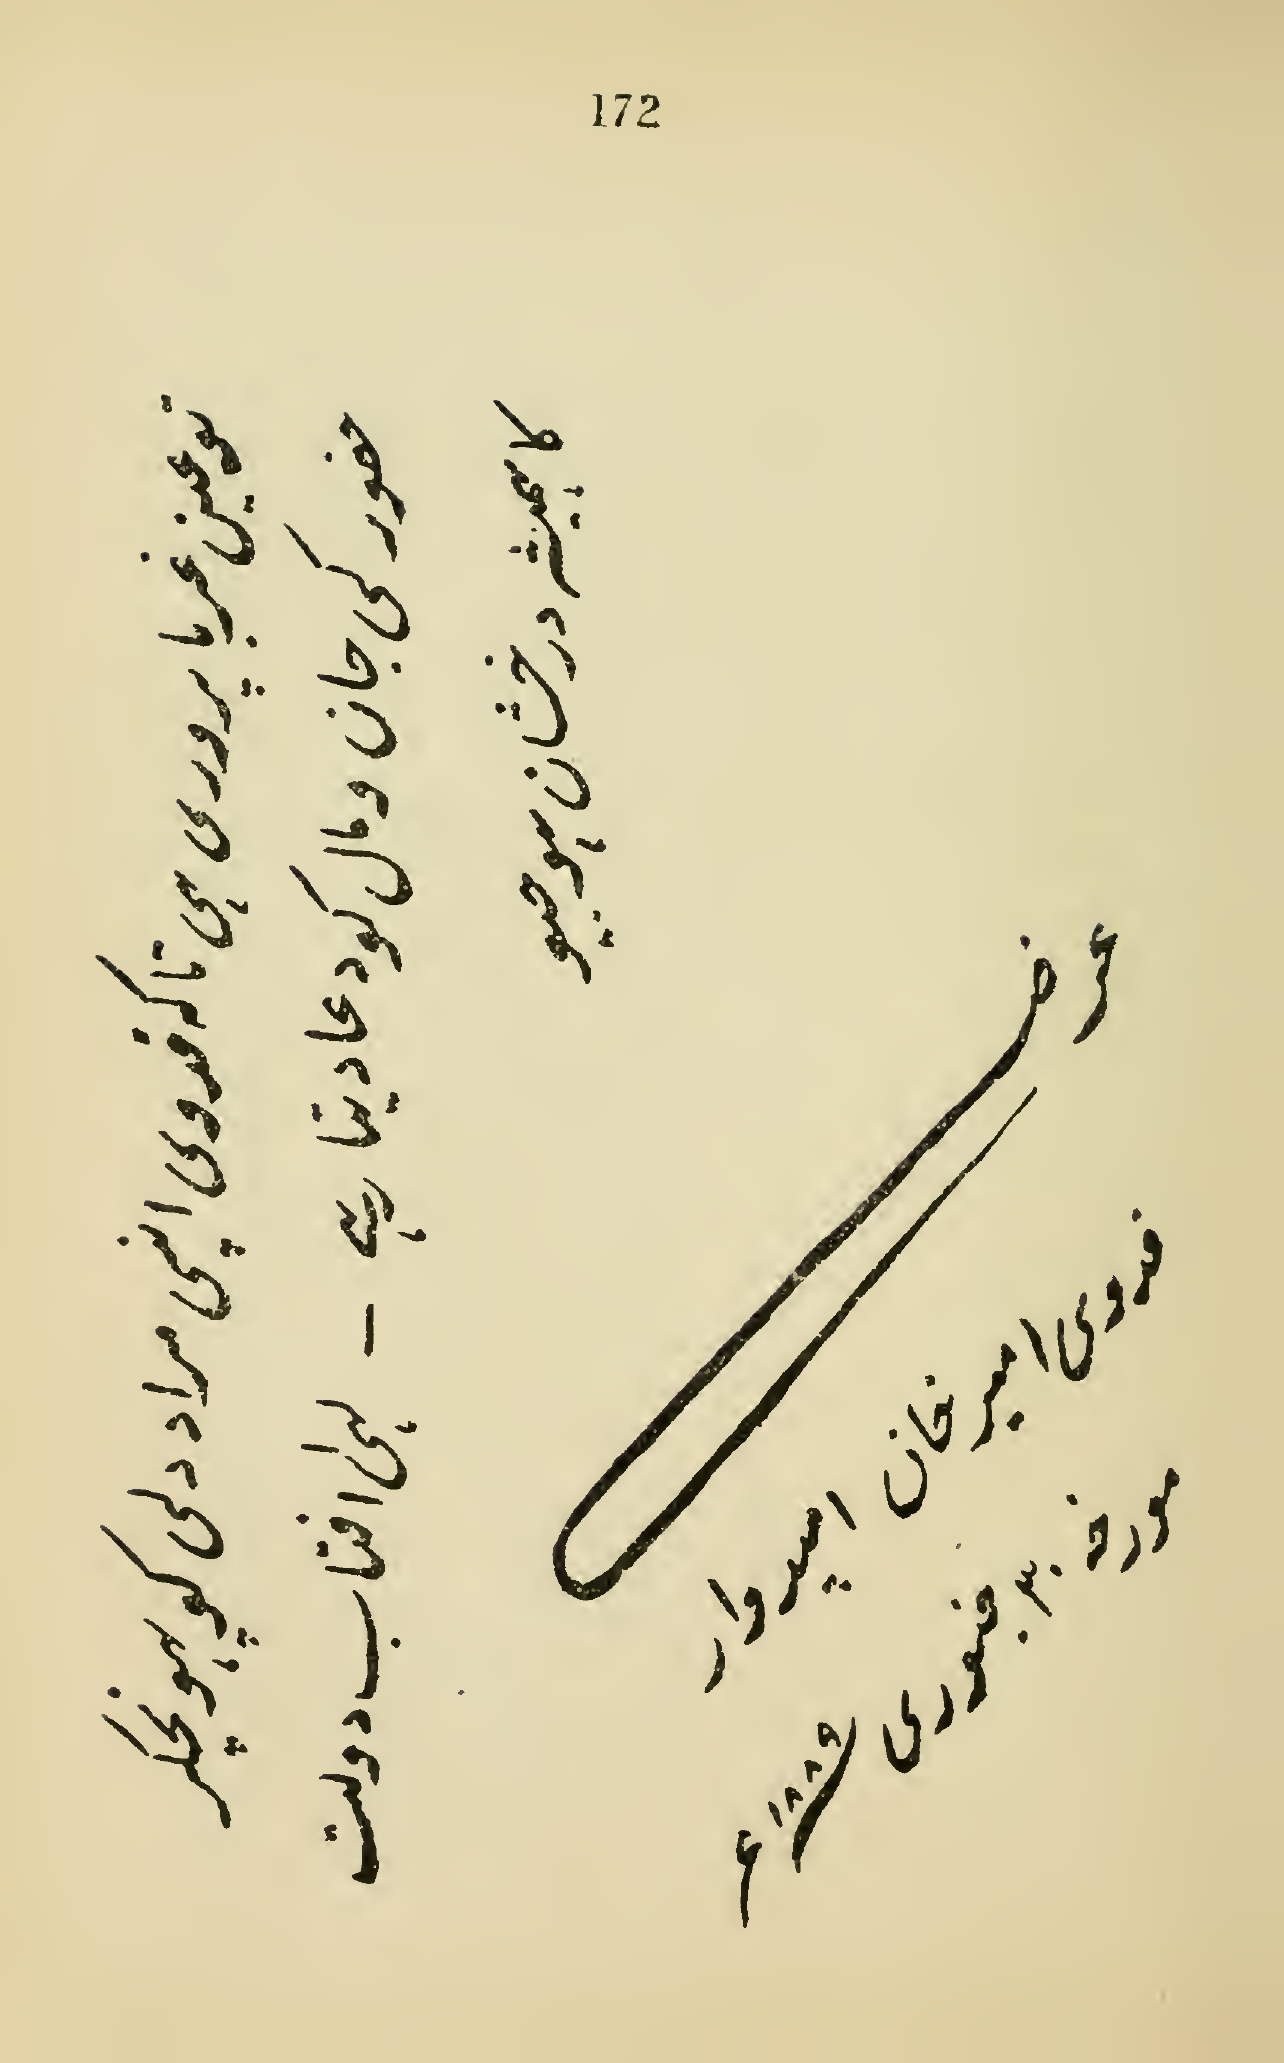 172
تو عین غربا پروری ہی تاکہ فدوی اپنی مراد دلی کو پہونچکر
حضور کی جان و مال کو دعا دیتا رہے - الہی افتاب دولت
کا ہمیشہ درخشان ہوجیو
عرضـــــے
فدوی امیر خان امیدوار
مورخہ ۳۰ جنوری ۱۸۸۹ء